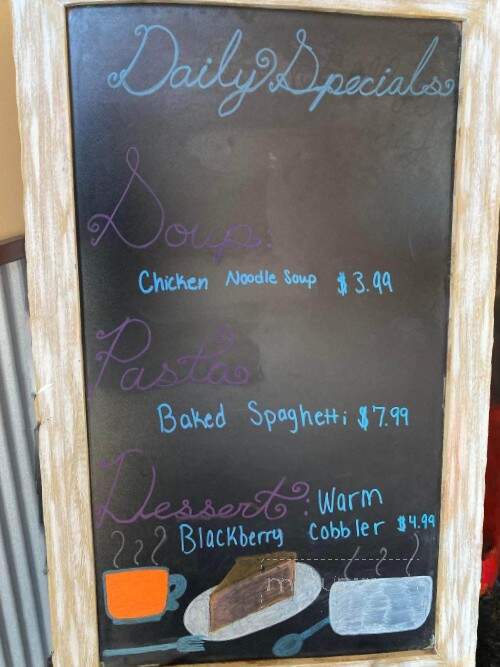 Daily Specials
Soup:
Chicken Noodle Soup $3.99
Pasta
Baked Spaghetti $7.99
Dessert: Warm
Blackberry Cobbler $4.99